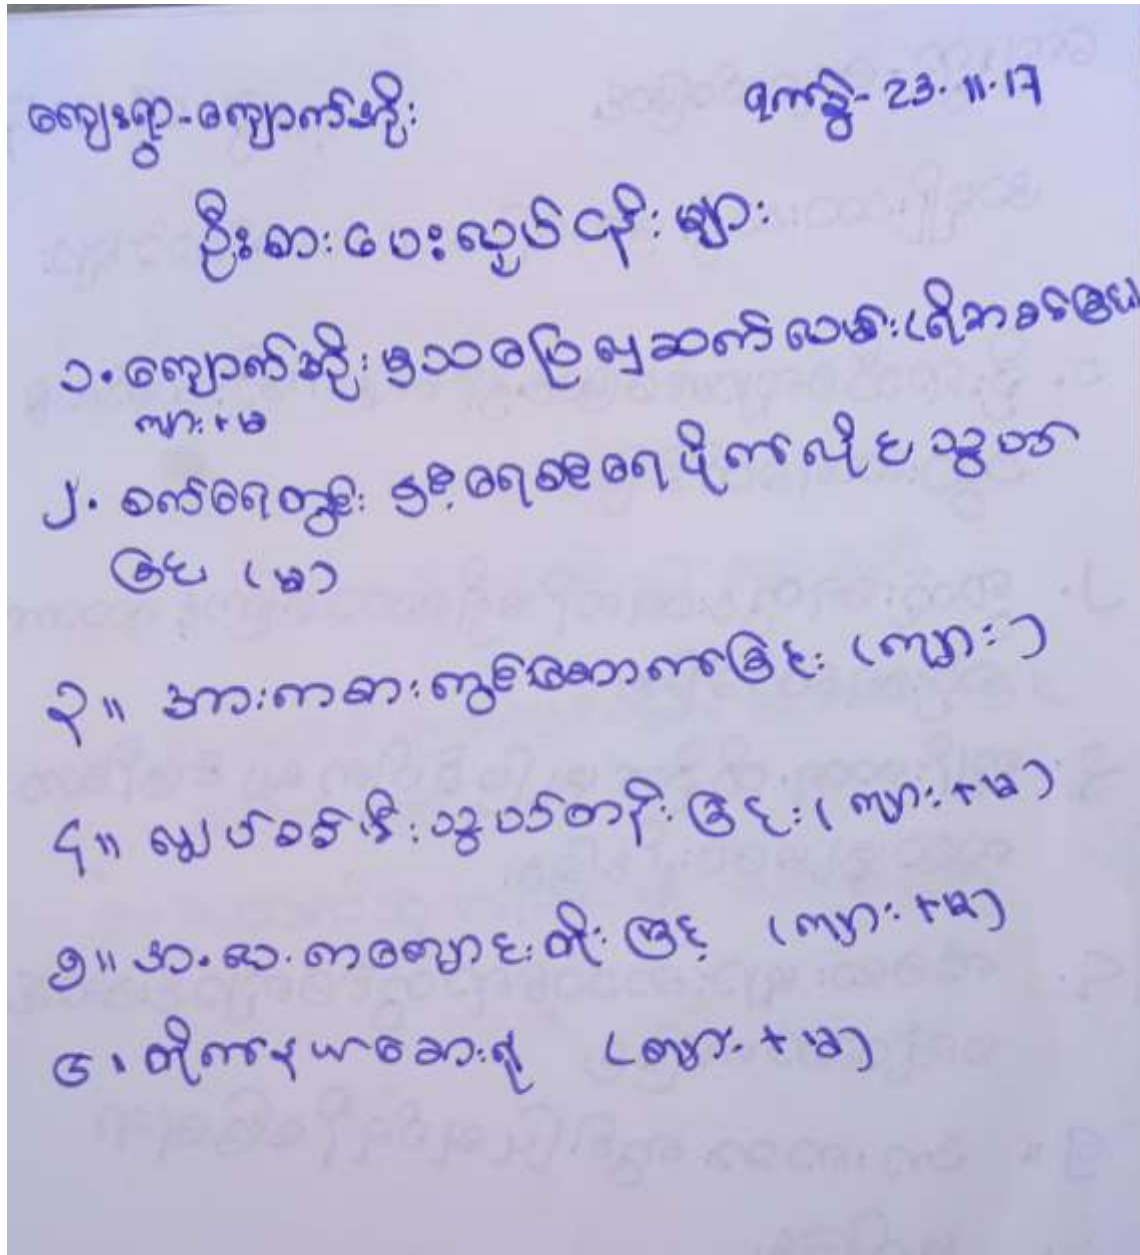 ကျေးရွာ-ကျောက်အိုး ရက်စွဲ- 23.11.17
ဦးစားပေးလုပ်ငန်းများ
၁. ကျောက်အိုး မှ
ကျား+မ
၂. စက်ရေတွင်း နှင့် ရေပိုက်လိုင်းသွယ်
ခြင်း (မ)
၃။ အားကစားကွင်းဆောက်ခြင်း (ကျား)
၄။ လျှပ်စစ်မီးသွယ်တန်းခြင်း (ကျား+မ)
၅။ အ.လ.ကကျောင်းတိုးမြှင့် (ကျား+မ)
၆. တိုက်နယ်ဆေးရုံ (ကျား+မ)